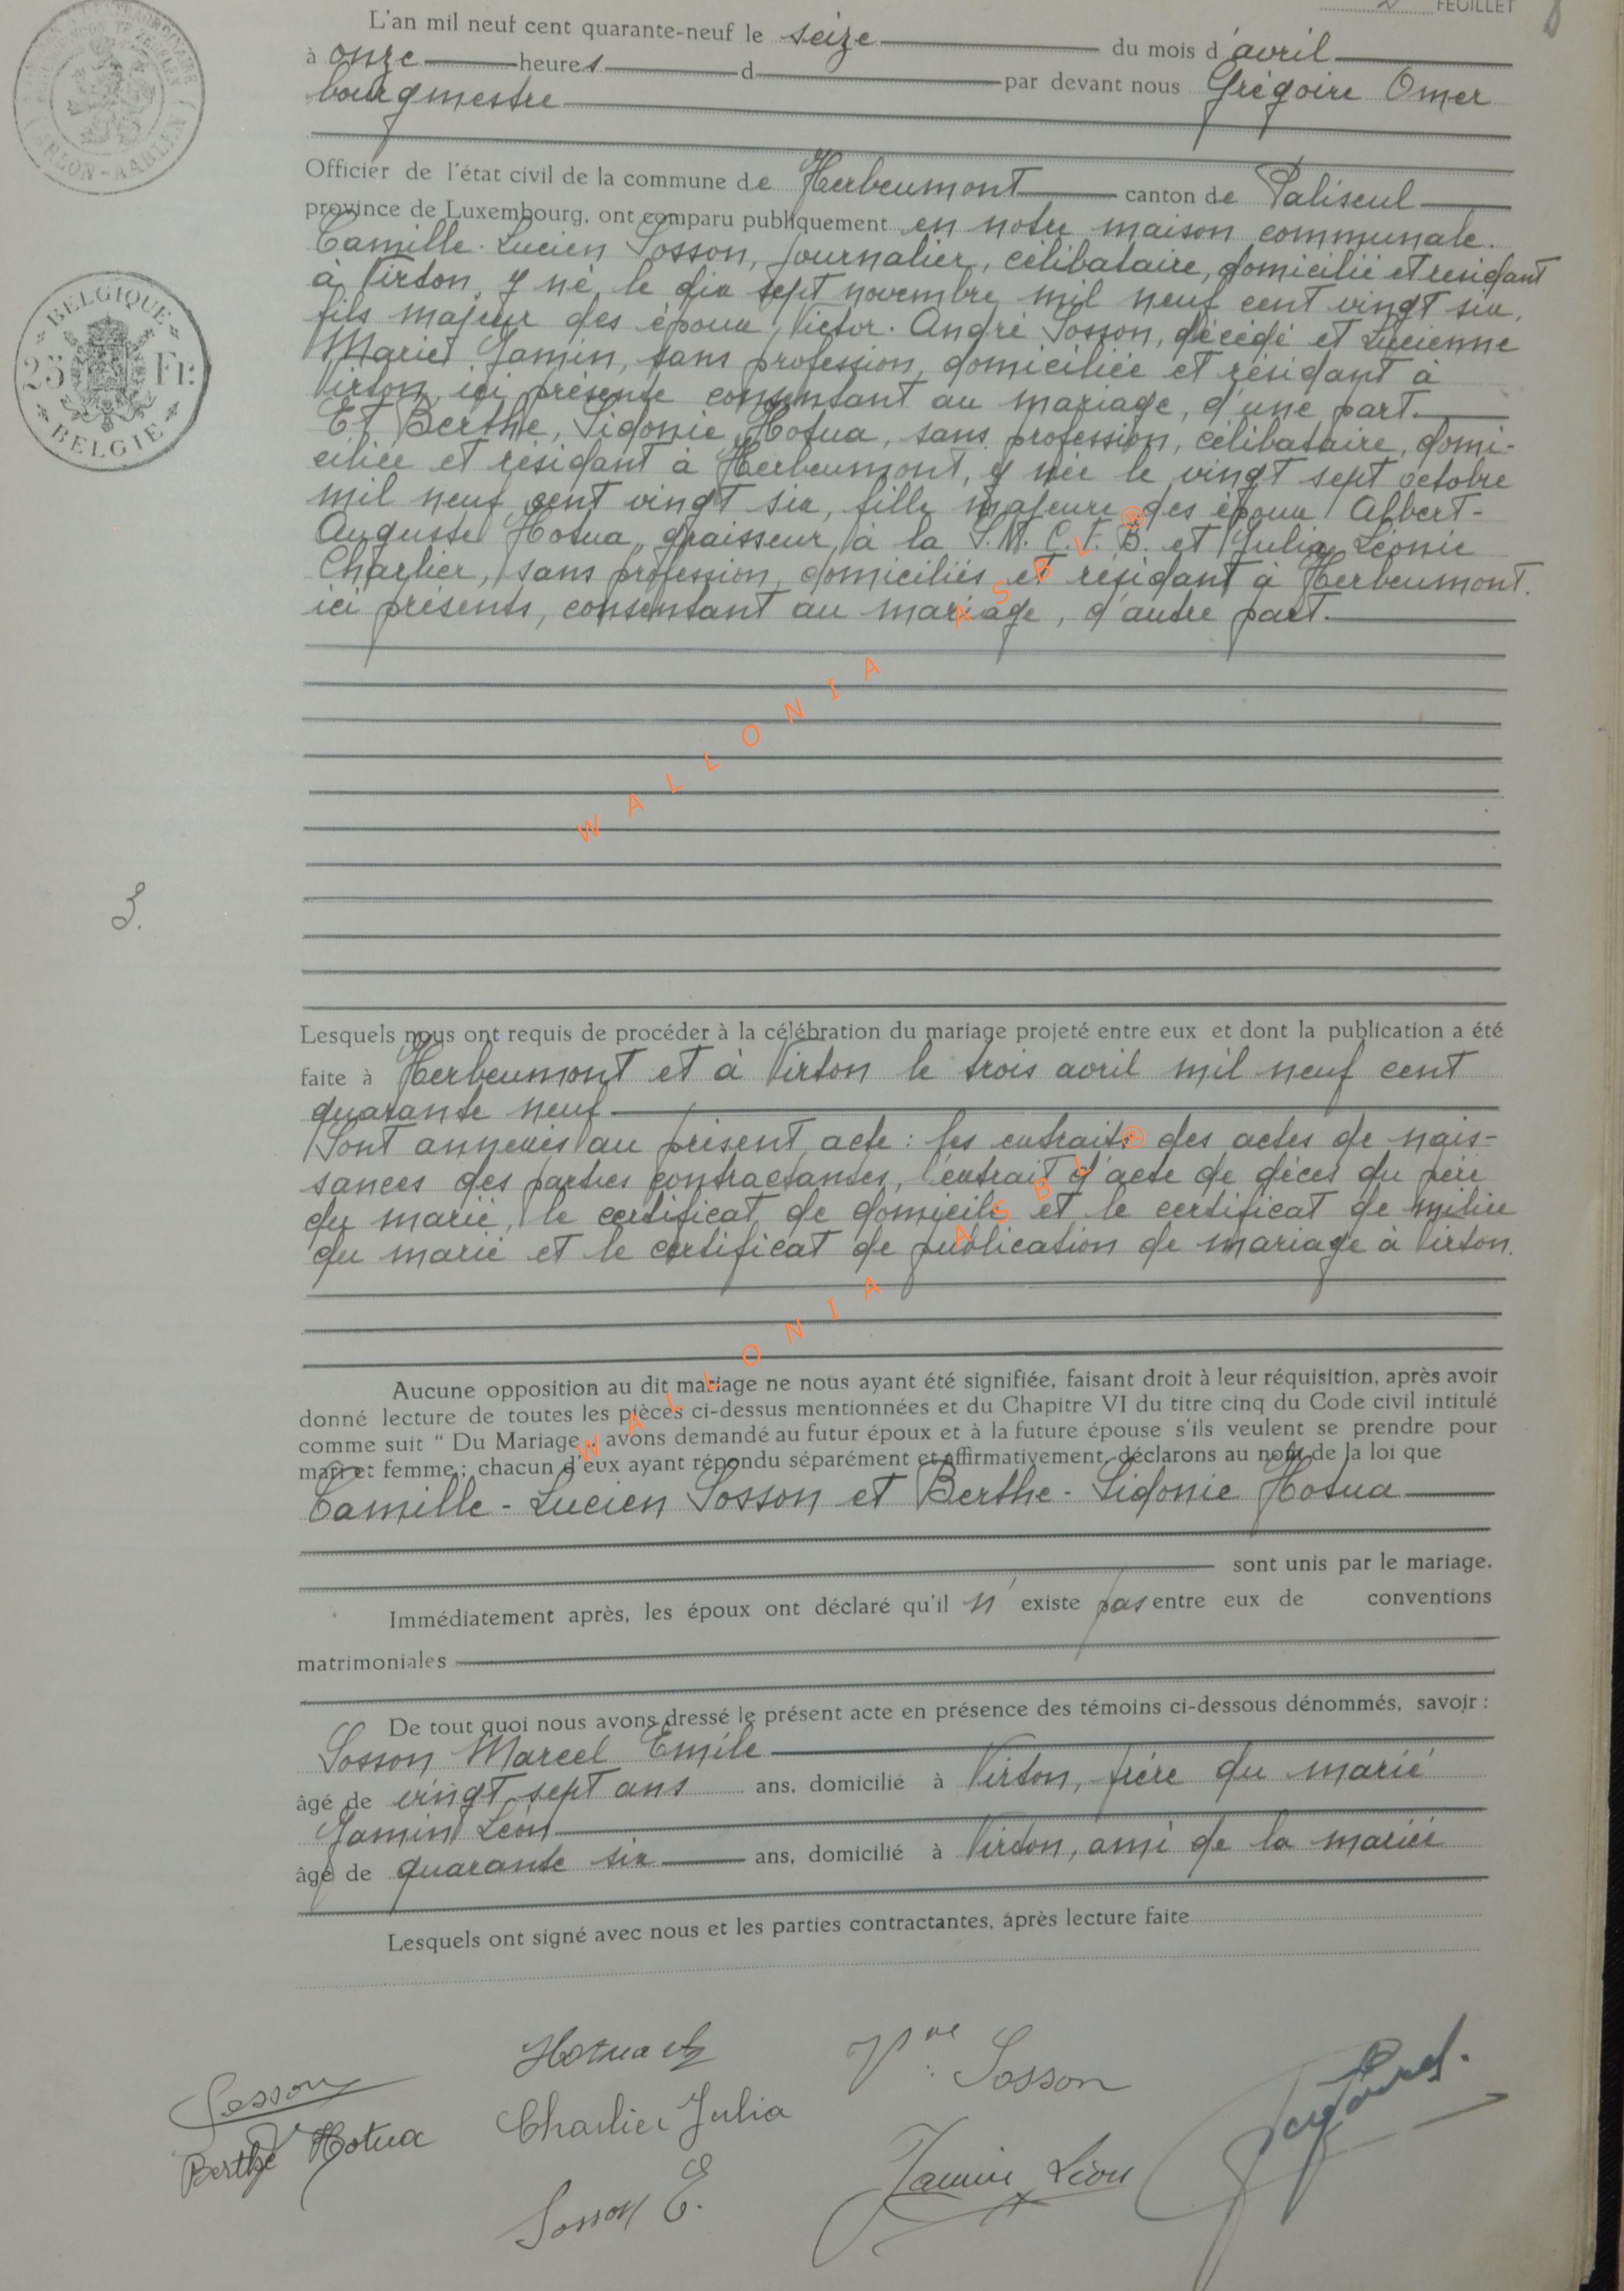 FEUILLET
L'an mil neuf cent quarante-neuf le seize du mois d'avril
à onze heures d par devant nous Grégoire Omer
bourgmestre
ARLON-AARLEN
Officier de l'état civil de la commune de Herbeumont canton de Paliseul
province de Luxembourg, ont comparu publiquement en notre maison communale.
Camille-Lucien Sosson, journalier, célibataire, domicilié et résidant
à Virton, y né, le dix sept novembre mil neuf cent vingt six,
fils majeur des époux Victor-André Sosson, décédé et Lucienne
Marie Jamin, sans profession, domiciliée et résidant à
Virton, ici présente consentant au mariage, d'une part.
Et Berthe, Sidonie Hotua, sans profession, célibataire, domi-
ciliée et résidant à Herbeumont, y née le vingt sept octobre
mil neuf cent vingt six, fille majeure des époux Albert-
Auguste Hotua, graisseur à la S.N.C.F.B. et Julia Léonie
Charlier, sans profession, domiciliés et résidant à Herbeumont.
ici présents, consentant au mariage, d'autre part.
BELGIQUE
25 Fr.
BELGIE
WALLONIA ASBL ®
3.
Lesquels nous ont requis de procéder à la célébration du mariage projeté entre eux et dont la publication a été
faite à Herbeumont et à Virton le trois avril mil neuf cent
quarante neuf.
Sont annexés au présent acte : les extraits des actes de nais-
sances des parties contractantes, l'extrait d'acte de décès du père
du marié, le certificat de domicile et le certificat de milice
du marié et le certificat de publication de mariage à Virton.
WALLONIA ASBL ®
Aucune opposition au dit mariage ne nous ayant été signifiée, faisant droit à leur réquisition, après avoir
donné lecture de toutes les pièces ci-dessus mentionnées et du Chapitre VI du titre cinq du Code civil intitulé
comme suit “ Du Mariage „ avons demandé au futur époux et à la future épouse s'ils veulent se prendre pour
mari et femme ; chacun d'eux ayant répondu séparément et affirmativement, déclarons au nom de la loi que
Camille-Lucien Sosson et Berthe-Sidonie Hotua
sont unis par le mariage.
Immédiatement après, les époux ont déclaré qu'il n'existe pas entre eux de conventions
matrimoniales
De tout quoi nous avons dressé le présent acte en présence des témoins ci-dessous dénommés, savoir :
Sosson Marcel Emile
âgé de vingt sept ans ans, domicilié à Virton, frère du marié
Jamin Léon
âgé de quarante six ans, domicilié à Virton, ami de la mariée
Lesquels ont signé avec nous et les parties contractantes, après lecture faite
Sosson
Berthe Hotua
Charlier Julia
Sosson E.
Vve Sosson
Jamin Léon